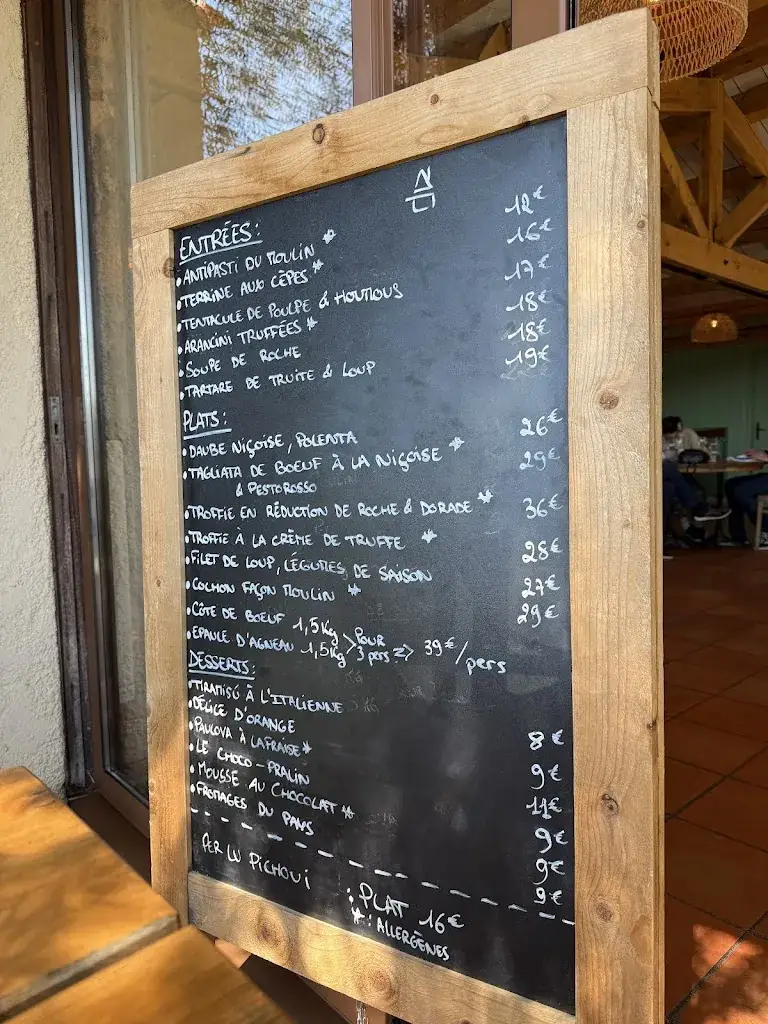 ENTRÉES:
• ANTIPASTI DU MOULIN * 12€
• TERRINE AUX CÈPES * 16€
• TENTACULE DE POULPE & HOUMOUS 17€
• ARANCINI TRUFFÉES * 18€
• SOUPE DE ROCHE 18€
• TARTARE DE TRUITE & LOUP 19€
PLATS:
• DAUBE NIÇOISE, POLENTA 26€
• TAGLIATA DE BOEUF À LA NIÇOISE * 29€
& PESTO ROSSO
• TROFFIE EN RÉDUCTION DE ROCHE & DORADE * 36€
• TROFFIE À LA CRÈME DE TRUFFE * 28€
• FILET DE LOUP, LÉGUMES DE SAISON 27€
• COCHON FAÇON MOULIN * 29€
• CÔTE DE BOEUF 1,5Kg
• EPAULE D'AGNEAU 1,5Kg > POUR 3 pers => 39€/pers
DESSERTS:
• TIRAMISÚ À L'ITALIENNE 8€
• DÉLICE D'ORANGE 9€
• PAVLOVA À LA FRAISE * 11€
• LE CHOCO-PRALIN 9€
• MOUSSE AU CHOCOLAT * 9€
• FROMAGES DU PAYS 9€
PER LU PICHOUI : PLAT 16€
* : ALLERGÈNES